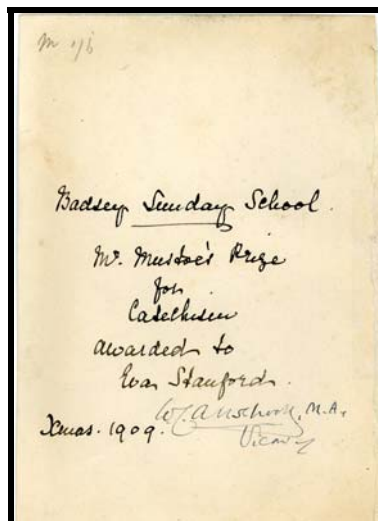 m 1/6
Badsey Sunday School.
Mr. Mustoe's Prize
for
Catechism
awarded to
Eva Stanford.
W. H. Allsebrook, M.A.
Vicar
Xmas. 1909.